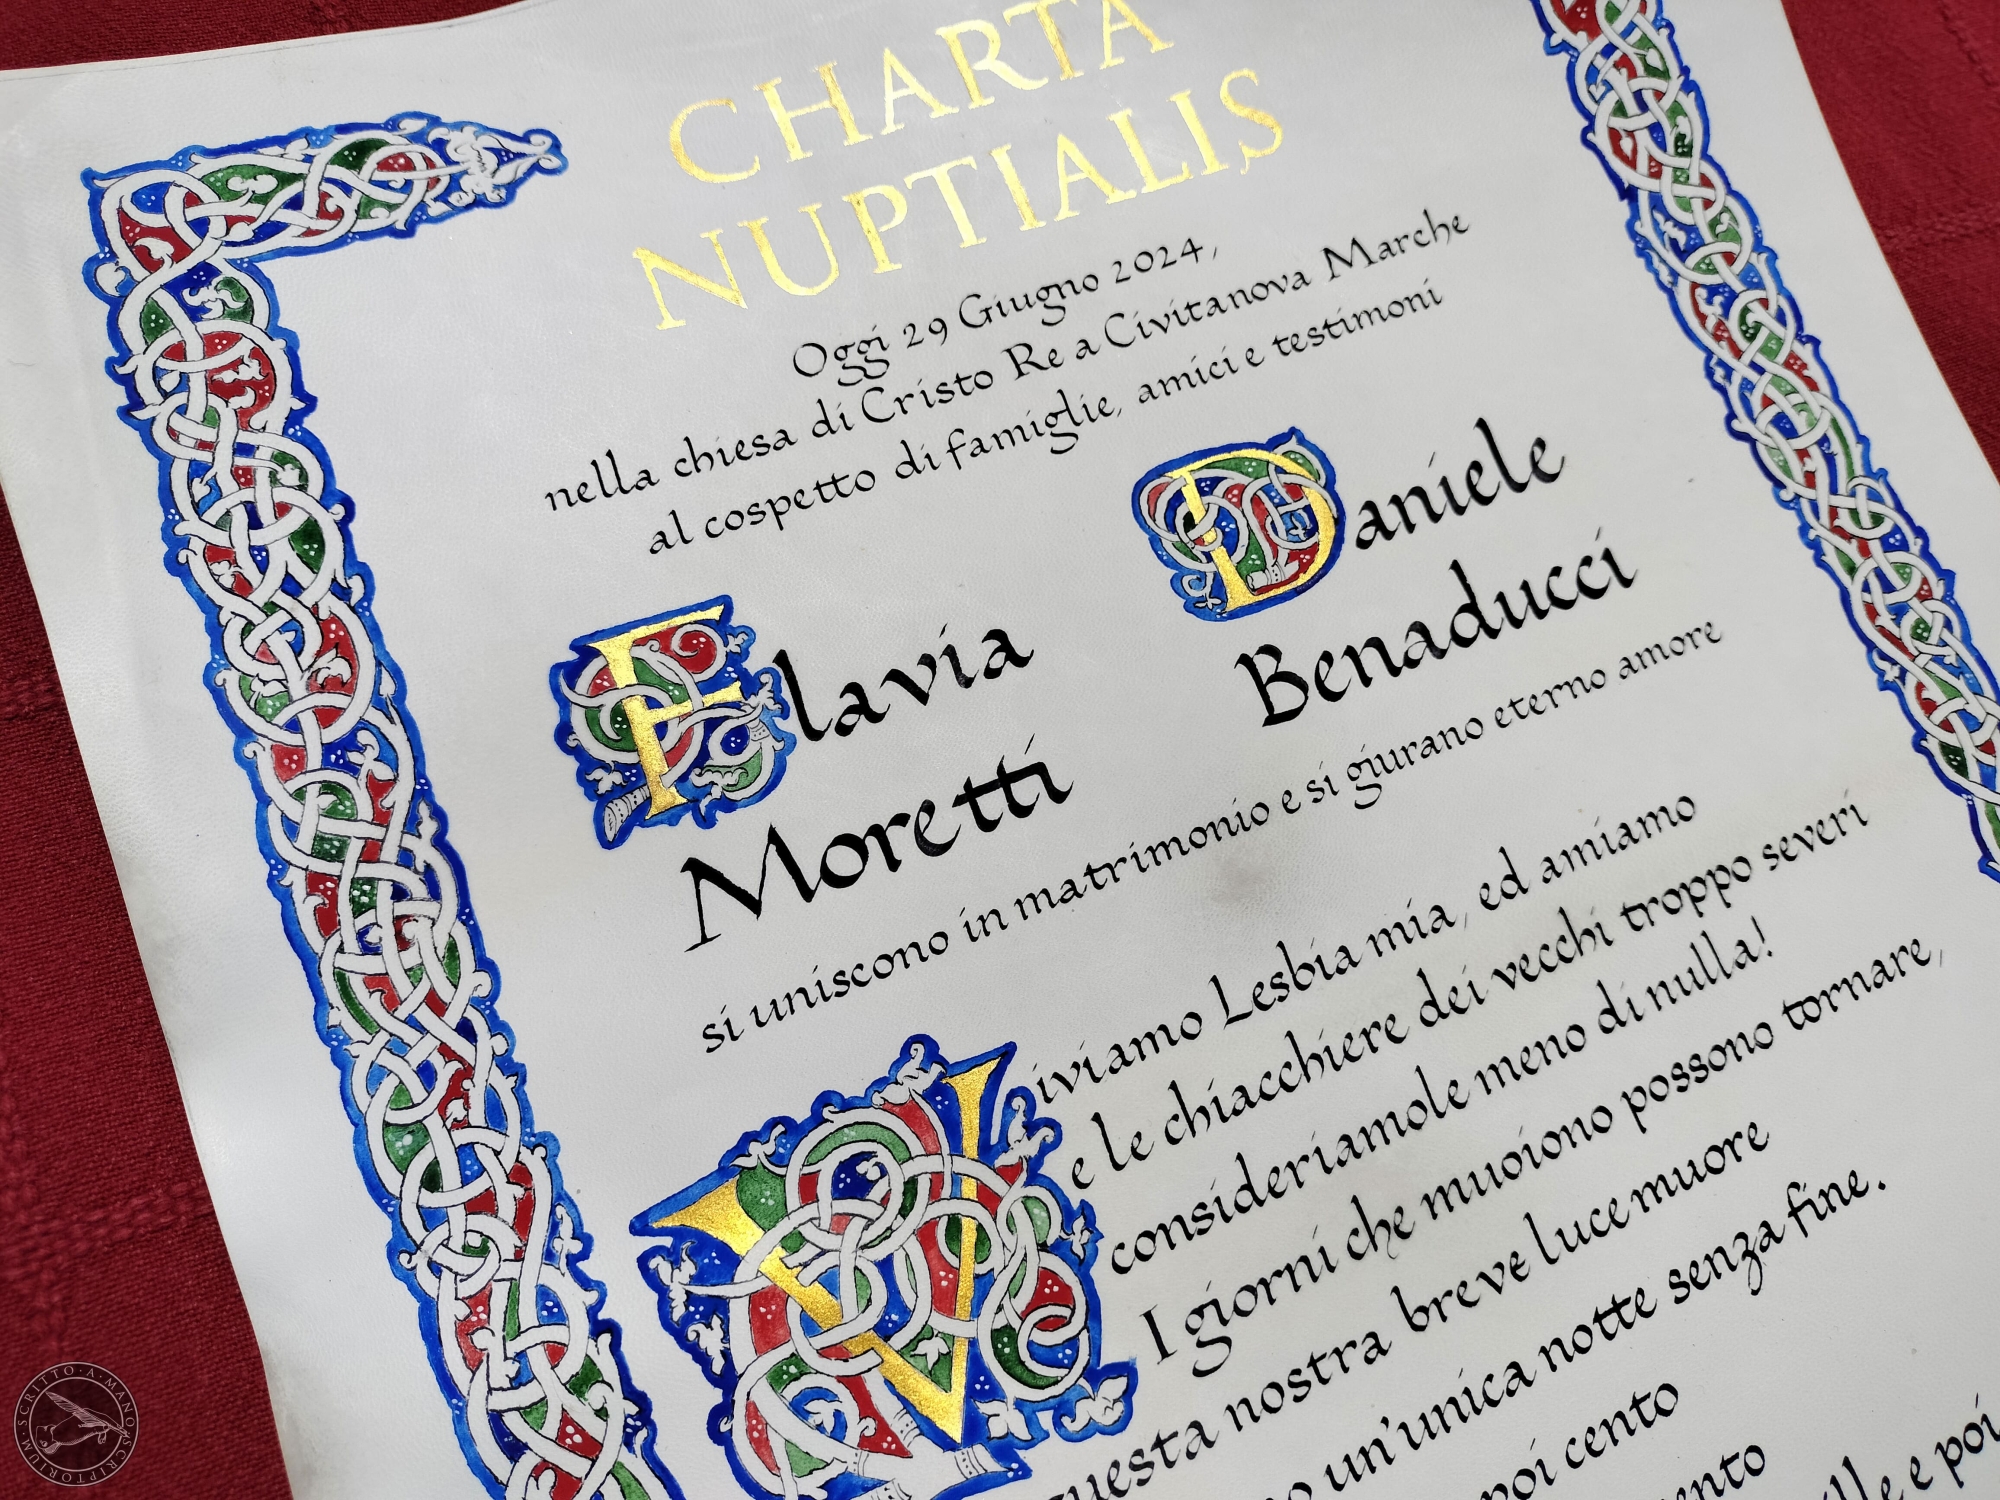 CHARTA
NUPTIALIS
Oggi 29 Giugno 2024,
nella chiesa di Cristo Re a Civitanova Marche
al cospetto di famiglie, amici e testimoni
Flavia
Moretti
Daniele
Benaducci
si uniscono in matrimonio e si giurano eterno amore
Viviamo Lesbia mia, ed amiamo
e le chiacchiere dei vecchi troppo severi
consideriamole meno di nulla!
I giorni che muoiono possono tornare,
questa nostra breve luce muore
un'unica notte senza fine.
poi cento
e poi
SCRITTO·A·MANO
SCRIPTORIUM